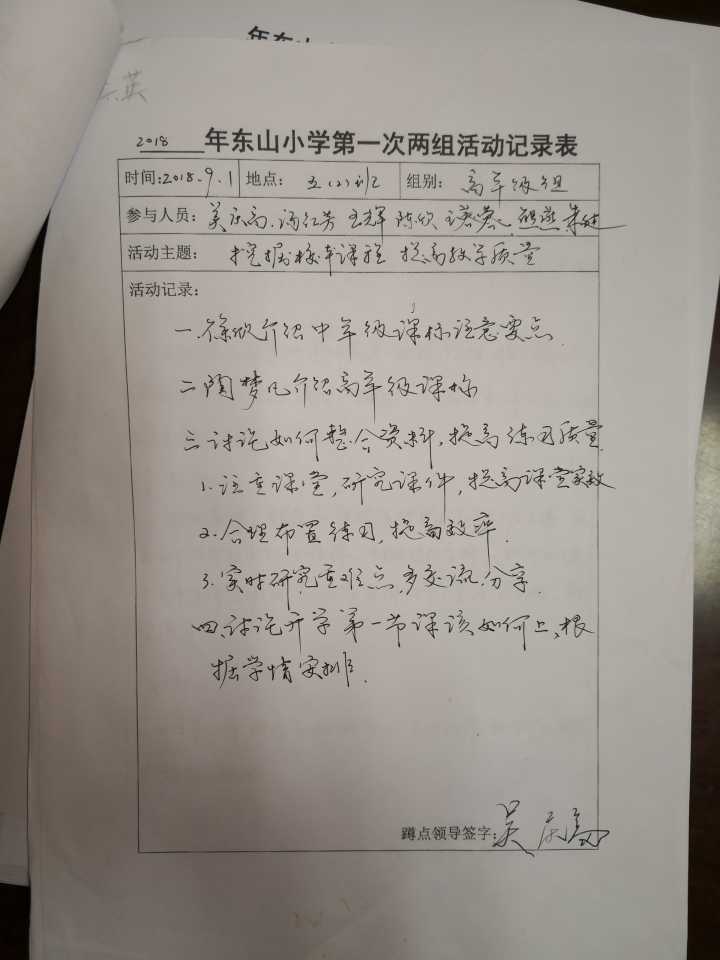 2018年东山小学第一次两组活动记录表
时间:2018.9.1 地点: 五(2)班 组别: 高年级组
参与人员: 吴庆高.汤红芳 王辉 陈欣
活动主题: 挖掘校本课程 提高教学质量
活动记录:
一.徐欣介绍中年级课标注意要点.
二陶梦凡介绍高年级课标
三讨论如何整合资料,提高练习质量.
1.注重课堂,研究课件,提高课堂实效
2.合理布置练习,提高效率.
3.实时研究重难点,多交流,分享.
四.讨论开学第一节课该如何上,根
据学情安排.
蹲点领导签字:吴庆高